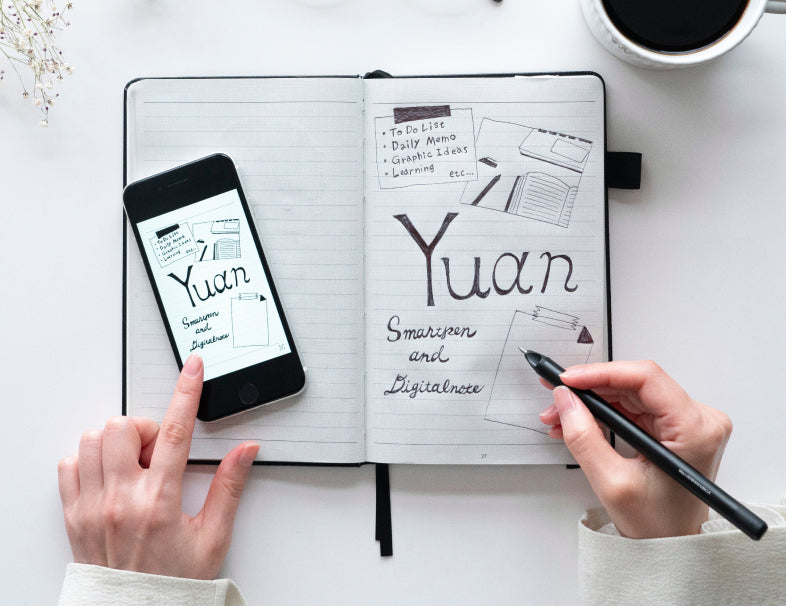 • To Do List
• Daily Memo
• Graphic Ideas
• Learning etc...
Yuan
Smartpen
and
Digitalnote
27
• To Do List
• Daily Memo
• Graphic Ideas
• Learning etc...
Yuan
Smartpen
and
Digitalnote